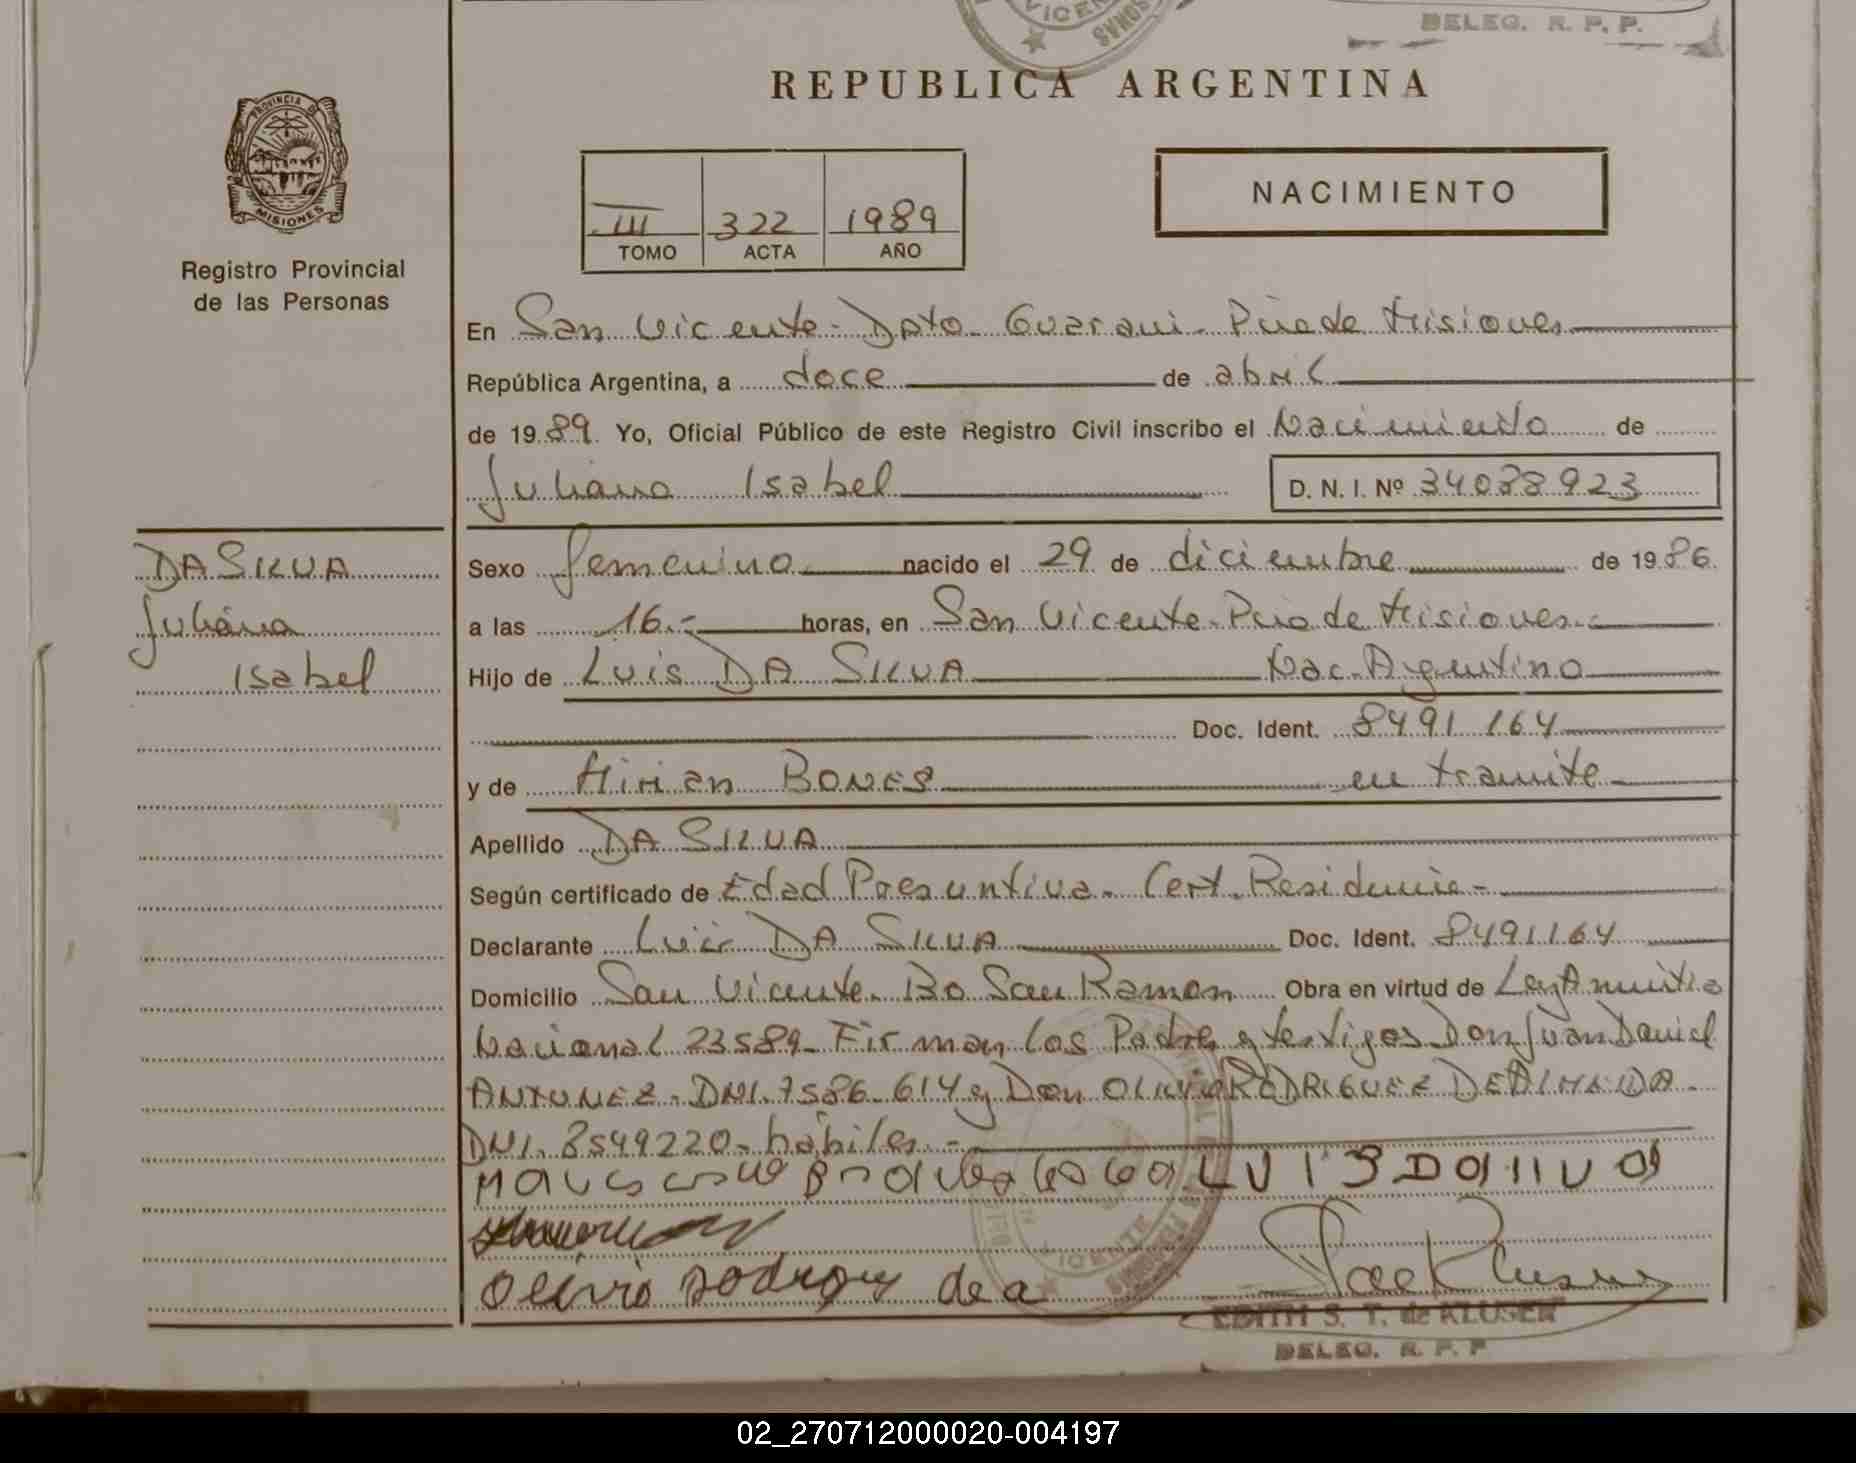 DELEG. R. P. P.
REPUBLICA ARGENTINA
PROVINCIA DE
MISIONES
Registro Provincial
de las Personas
III 322 1989
TOMO ACTA AÑO
NACIMIENTO
En San Vicente - Dpto Guarani - Pcia de Misiones
República Argentina, a doce de abril
de 1989. Yo, Oficial Público de este Registro Civil inscribo el Nacimiento de
Juliana Isabel D. N. I. Nº 34038923
DA SILVA
Juliana
Isabel
Sexo femenino nacido el 29 de diciembre de 1986.
a las 16.- horas, en San Vicente - Pcia de Misiones.-
Hijo de Luis DA SILVA Nac. Argentino
Doc. Ident. 8491164
y de Mirian BONES en tramite
Apellido DA SILVA
Según certificado de Edad Presuntiva. Cert. Residencia-
Declarante Luis DA SILVA Doc. Ident. 8491164
Domicilio San Vicente. Bo San Ramon Obra en virtud de Ley Amnistia
Nacional 23589- Firman los Padres y testigos Don Juan Daniel
ANTUNEZ - DNI. 7586.614 y Don OLIVIO RODRIGUEZ DE ALMEIDA -
DNI. 8549220 - hábiles.-
LUIS Da IIUa
Olivio Rodrigues de a
EDITH S. T. de KLUSER
DELEG. R. P. P
02_270712000020-004197